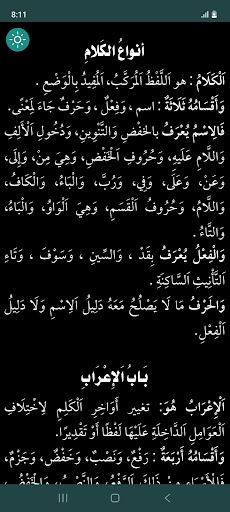 8:11
أنواعُ الكَلَامِ
اَلْكَلَامُ : هو اَللَّفْظُ اَلْمُرَكَّبُ، اَلْمُفِيدُ بِالْوَضْعِ .
وَأَقْسَامُهُ ثَلَاثَةٌ : اسم ، وَفِعْلٌ ، وَحَرْفٌ جَاءَ لِمَعْنًى.
فَالِاسْمُ يُعْرَفُ بِالخَفْضِ وَالتَّنْوِينِ، وَدُخُولِ اَلْأَلِفِ
وَاللَّامِ عَلَيْهِ، وَحُرُوفِ اَلْخَفْضِ، وَهِيَ مِنْ، وَإِلَى،
وَعَنْ، وَعَلَى، وَفِي، وَرُبَّ، وَالْبَاءُ، وَالْكَافُ،
وَاللَّامُ، وَحُرُوفُ اَلْقَسَمِ، وَهِيَ اَلْوَاوُ، وَالْبَاءُ،
وَالتَّاءُ .
وَالْفِعْلُ يُعْرَفُ بِقَدْ ، وَالسِّينِ ، وَسَوْفَ ، وَتَاءِ
اَلتَّأْنِيثِ اَلسَّاكِنَةِ .
وَالْحَرْفُ مَا لَا يَصْلُحُ مَعَهُ دَلِيلُ اَلِاسْمِ وَلَا دَلِيلُ
اَلْفِعْلِ.
بَابُ اَلْإِعْرَابِ
اَلْإِعْرَابُ هُوَ: تغيير أَوَاخِرِ اَلْكَلِمِ لِاخْتِلَافِ
اَلْعَوَامِلِ اَلدَّاخِلَةِ عَلَيْهَا لَفْظًا أَوْ تَقْدِيرًا.
وَأَقْسَامُهُ أَرْبَعَةٌ : رَفْعٌ، وَنَصْبٌ، وَخَفْضٌ، وَجَزْمٌ،